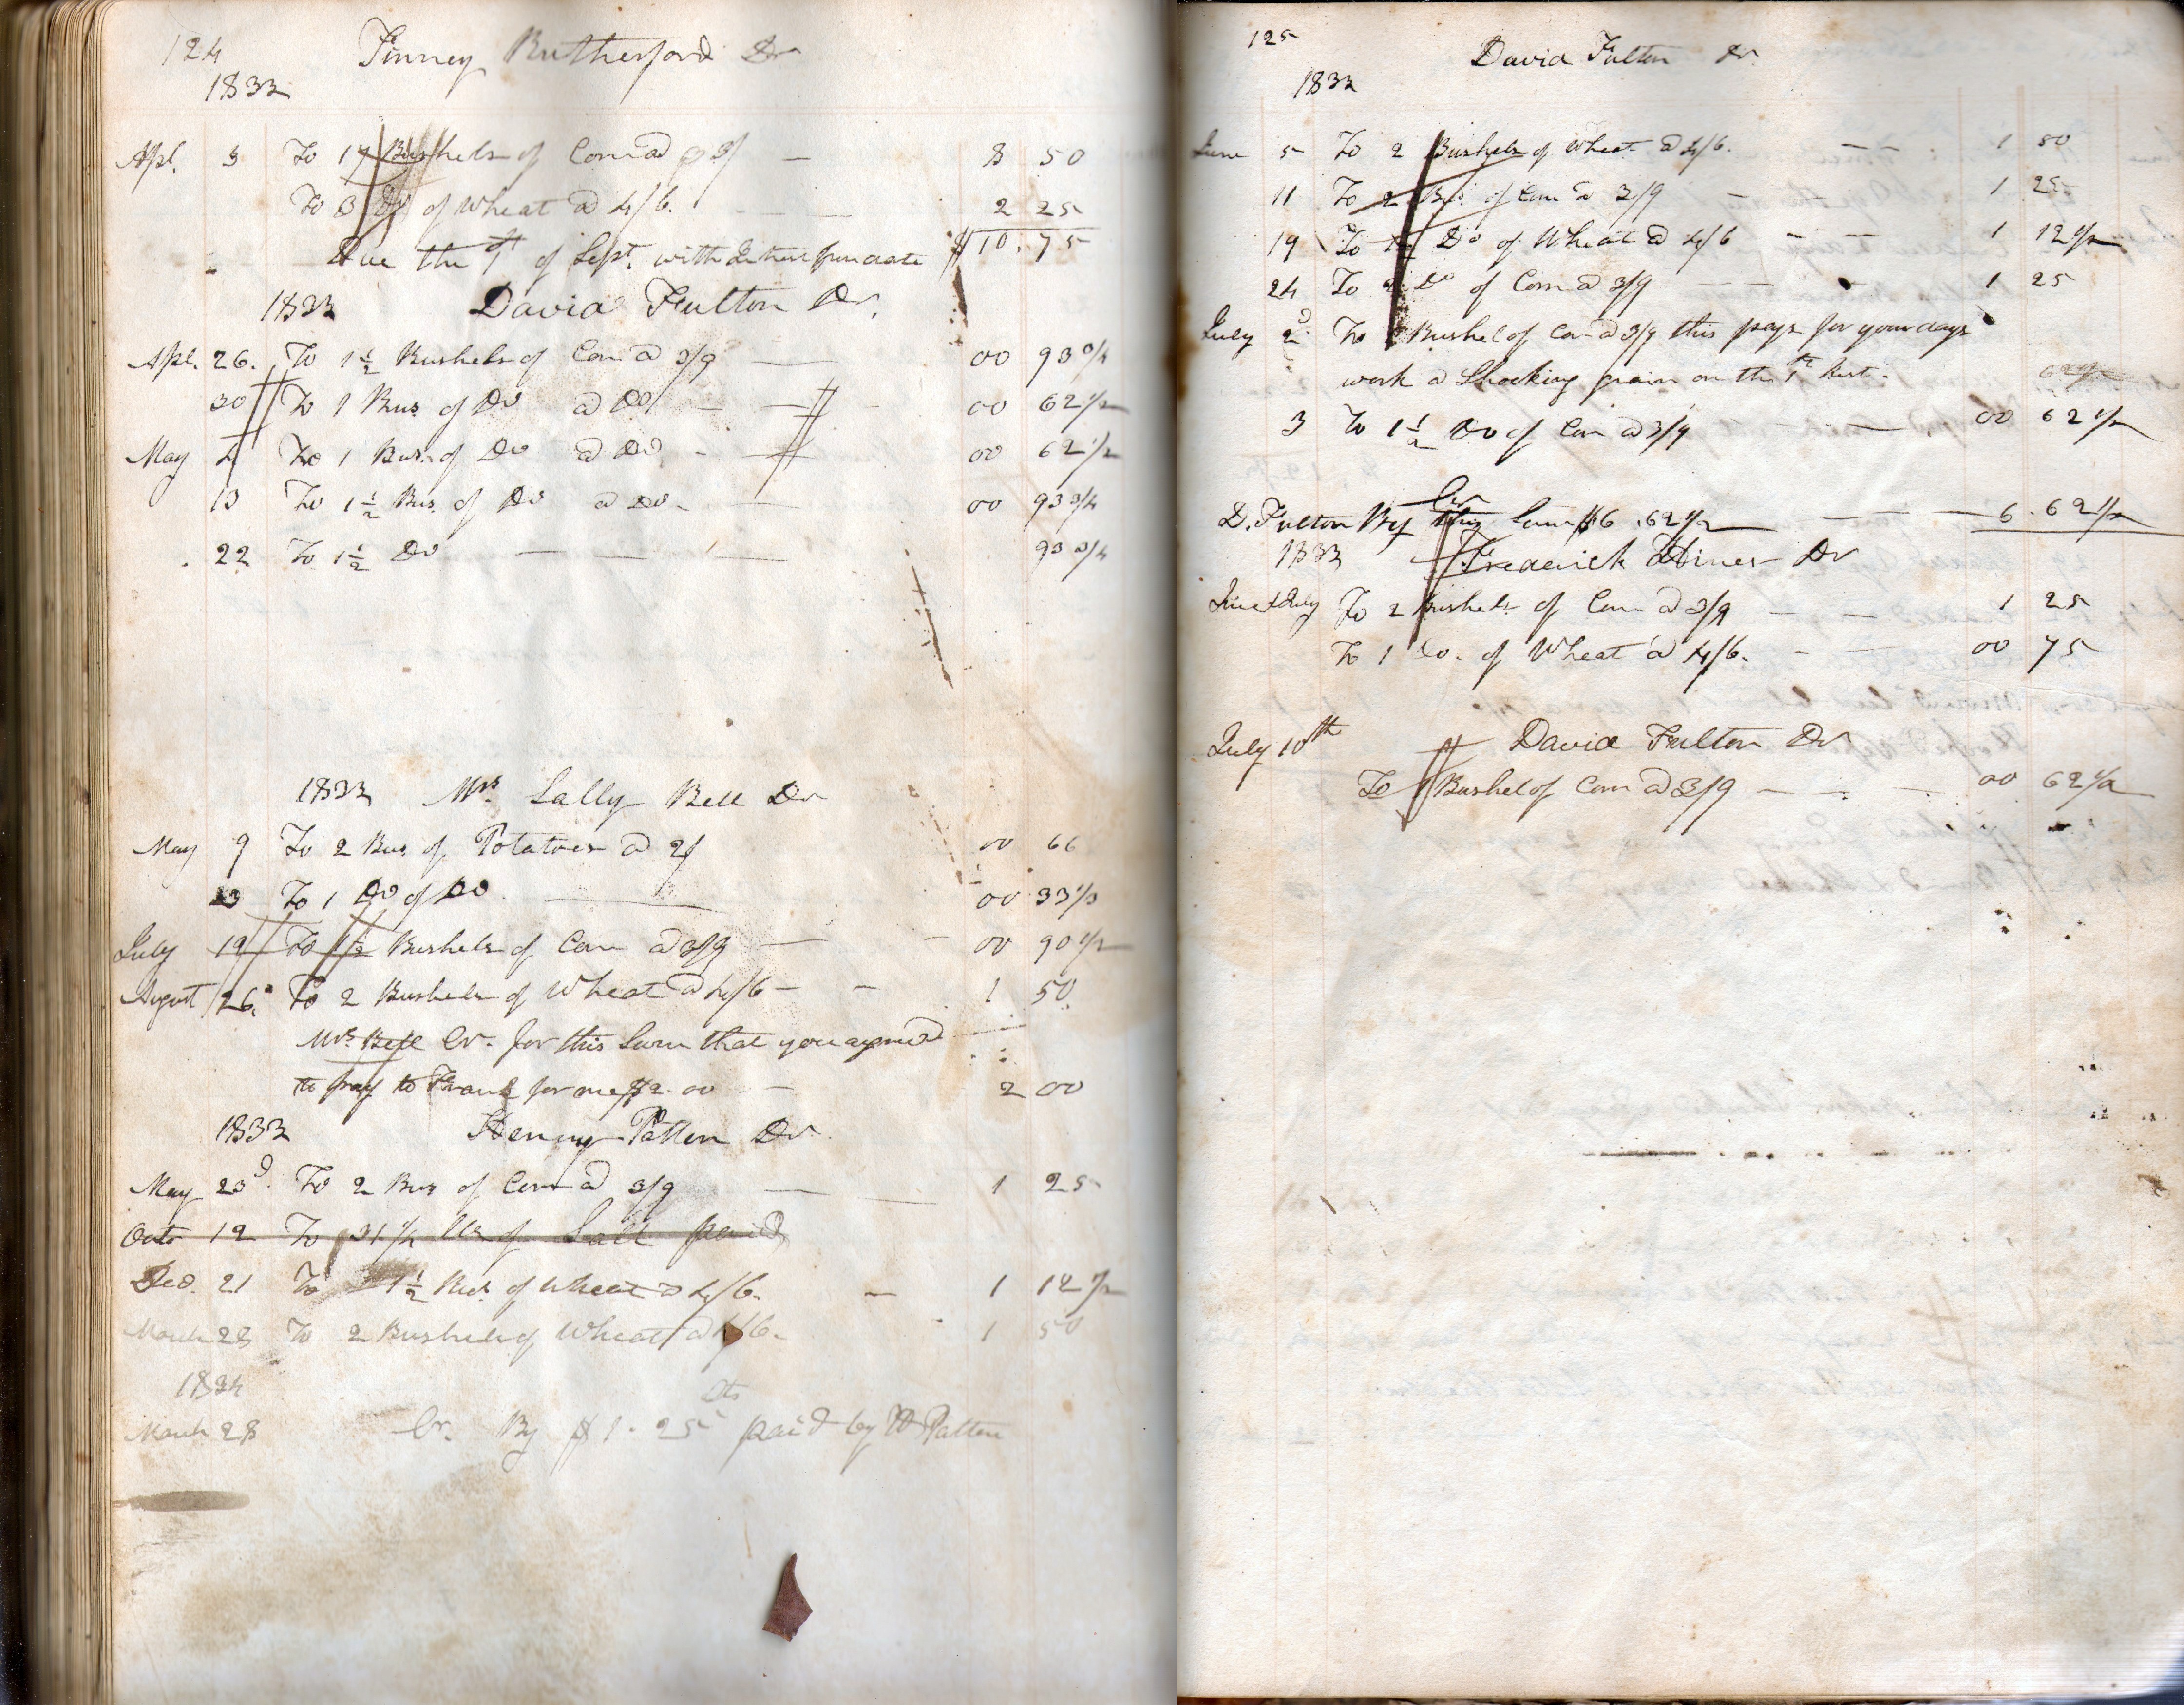 124 Pinney Rutherford Dr
1833
Apl. 3 To 17 Bushels of Corn @ 3/ — 8 50
To 3 Do of Wheat @ 4/6. — 2 25
$10.75
Due the 1st of Sept. with Interest from date
1833 David Fulton Dr.
Apl. 26. To 1 1/2 Bushels of Corn @ 3/9 — 00 93 3/4
30 To 1 Bus of Do @ Do — 00 62 1/2
May 4 To 1 Bus. of Do @ Do - 00 62 1/2
13 To 1 1/2 Bus. of Do @ Do - 00 93 3/4
22 To 1 1/2 Do — 93 3/4
1833 Mrs Sally Bell Dr
May 9 To 2 Bus of Potatoes @ 2/ 00 66
13 To 1 Do of Do 00 33 1/3
July 19 To 1 1/2 Bushels of Corn @ 3/9 — 00 90 1/2
August 26. To 2 Bushels of Wheat @ 4/6 - 1 50
Mrs Bell Cr. for this Sum that you agreed
to pay to Frank for me $2.00 — 2 00
1833 Henry Patten Dr
May 23d. To 2 Bus of Corn @ 3/9 — 1 25
Octo 12 To 31 1/2 lbs of Salt paid
Deo. 21 To 1 1/2 Bus. of Wheat @ 4/6. — 1 12 1/2
March 28 To 2 Bushels of Wheat @ 4/6. 1 50
1834
March 28 Cr. By $1.25 cts paid by H Patten
125 David Fulton Dr.
1833
June 5 To 2 Bushels of Wheat @ 4/6. — 1 50
11 To 2 Bus. of Corn @ 3/9 — 1 25
19 To 1 1/2 Do of Wheat @ 4/6 — 1 12 1/2
24 To 2 Do of Corn @ 3/9 — 1 25
July 2d. To 1 Bushel of Corn @ 3/9 this pays for your days
work @ Shocking grain on the 1st Inst. 62 1/2
3 To 1 1/2 Do of Corn @ 3/9 — 00 62 1/2
Cr
D. Fulton By this Sum $6.62 1/2 — 6.62 1/2
1833 Frederick Hines Dr
June & July To 2 Bushels of Corn @ 3/9 — 1 25
To 1 Do. of Wheat @ 4/6. — 00 75
July 10th David Fulton Dr
To 1 Bushel of Corn @ 3/9 — 00 62 1/2